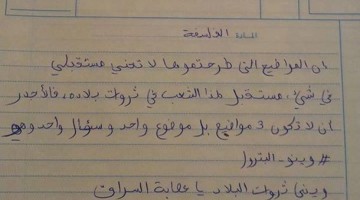 المادة الفلسفة
ان المواضيع التي طرحتموها لا تعني مستقبلي
في شيء، مستقبل هذا الشعب في ثروات بلاده، فالأجدر
ان لا تكون 3 مواضيع بل موضوع واحد و سؤال واحد وهو
# وينو_البترول
ويني ثروات البلاد يا عصابة السراق